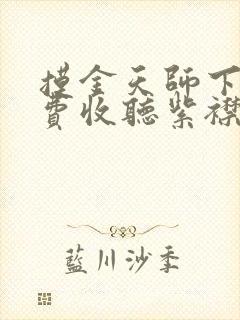 摸金天師下
費收聽紫襟
藍川沙季